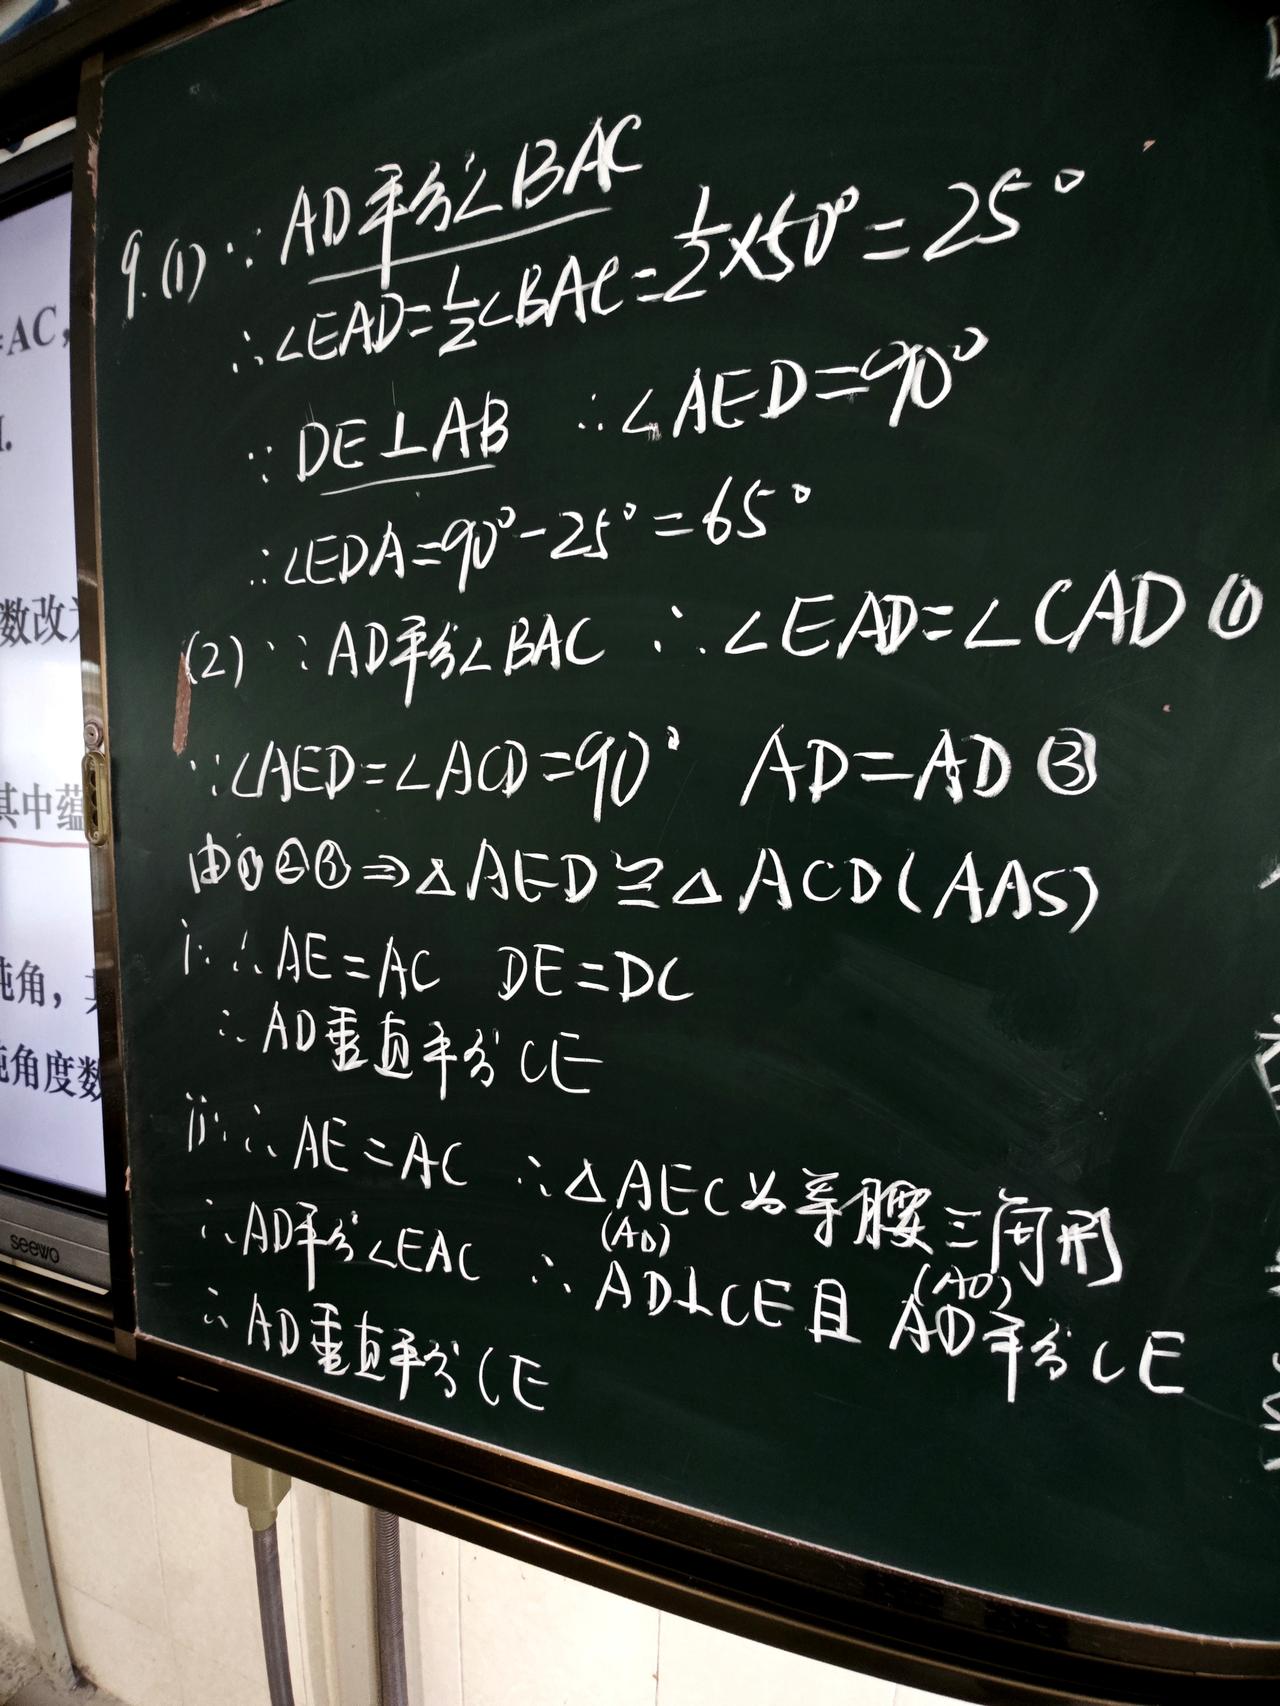 =AC,
数改为
其中蕴
钝角,
钝角度数
seewo
9.(1) ∵ AD平分∠BAC
∴∠EAD=½∠BAC=½×50°=25°
∵ DE⊥AB ∴∠AED=90°
∴∠EDA=90°-25°=65°
(2) ∵ AD平分∠BAC ∴∠EAD=∠CAD ①
∵∠AED=∠ACD=90° AD=AD ③
由①②③⇒△AED≌△ACD(AAS)
i: ∴AE=AC DE=DC
∴AD垂直平分CE
ii: ∴AE=AC ∴△AEC为等腰三角形
∴AD平分∠EAC ∴AD⊥CE且AD平分CE
(AO) (AO)
∴AD垂直平分CE